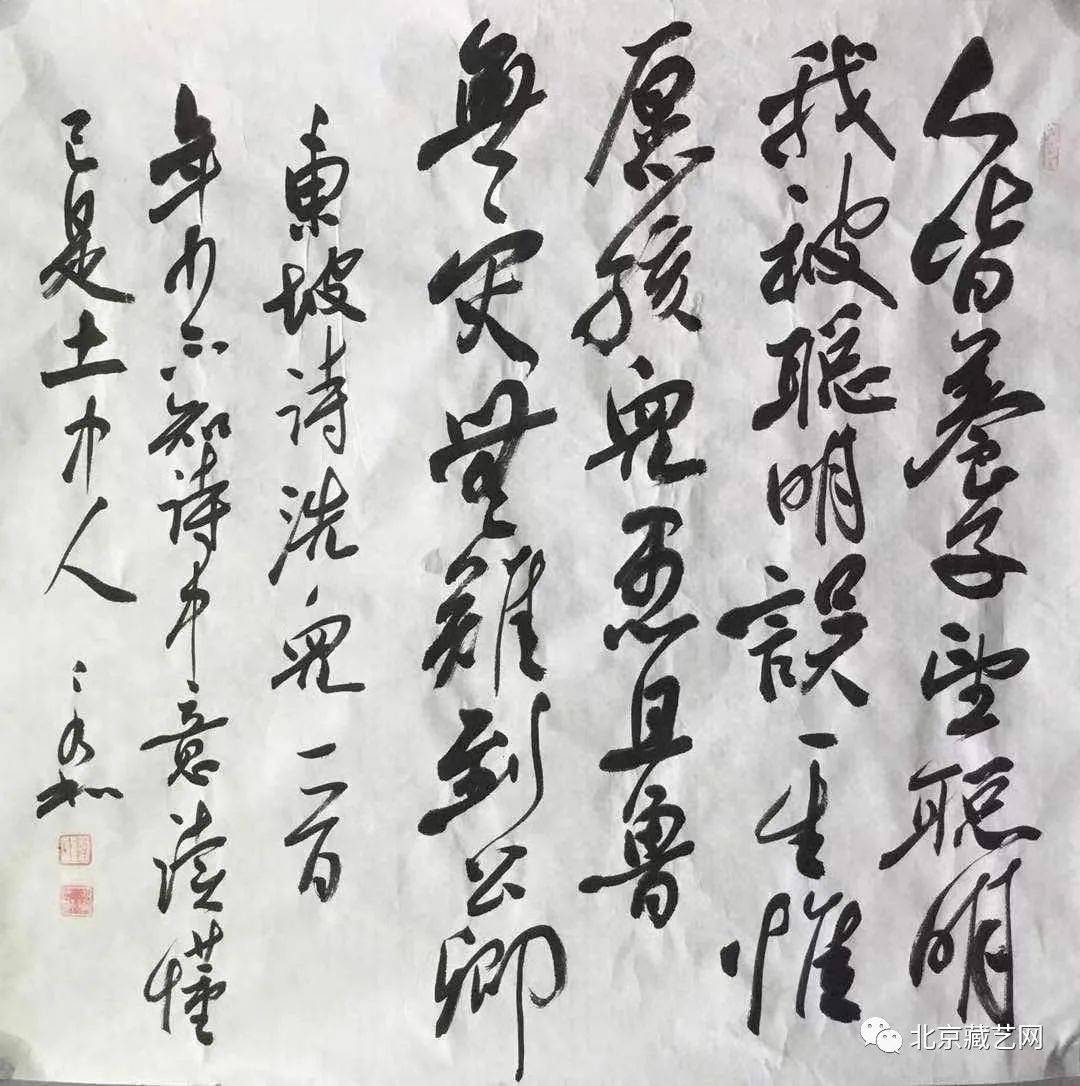 人皆養子望聰明
我被聰明誤一生惟
愿孩兒愚且魯
無灾無難到公卿
東坡詩洗兒一首
年少不知詩中意讀懂
已是土中人
北京藏艺网